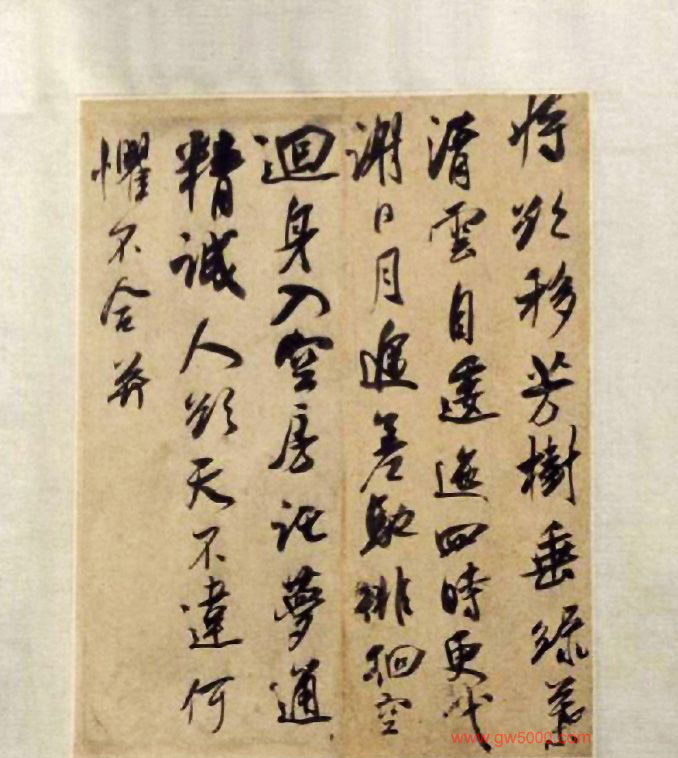 將欲移芳樹垂綠葉
清雲自逶迤四時更代
謝日月遞差馳徘徊空
迴身入空房託夢通
精誠人欲天不違何
懼不合并
www.gw5000.com